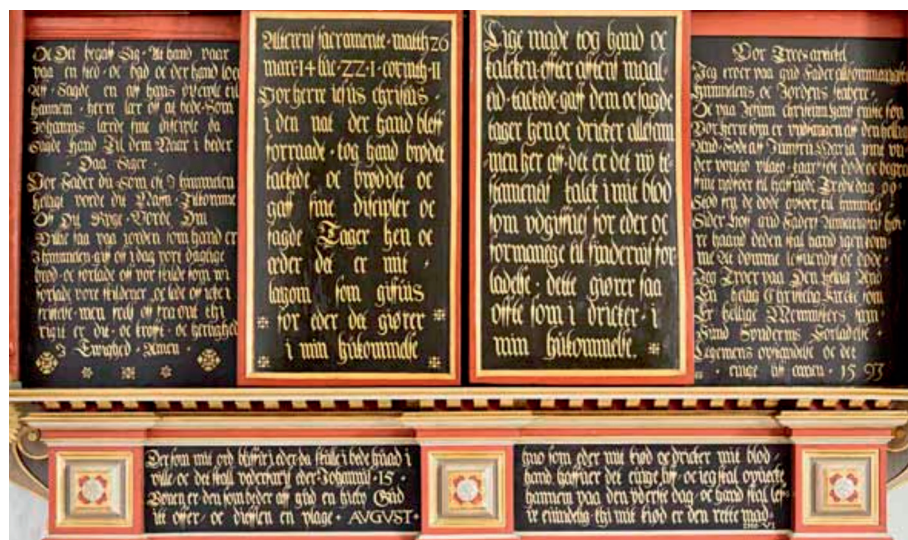 Det Det begaff Sig · At hand vaar
paa en sted · oc bad oc der hand loed
aff · Sagde en aff hans disciple til
hannem · herre lær oss at bede · Som
Johannes lærde sine disciple da
Sagde hand Til dem Naar i beder
Daa Siger ·
Vor Fader du Som est I himmelen
helligt vorde dit Naffn · Tilkomme
Oss Dit Rige · Vorde Din
Villie saa paa jorden som hand er
I himmelen giff oss i dag vore daglige
brød · oc forlade oss vor skyld som wi
forlade vore skyldener · oc lede oss icke i
fristelse · men frels oss fra ont thi
riget er dit · oc krafft · oc herlighed
I Ewighed · Amen ·
Alterens sacramente · matth 26
marc · 14 luc · 22 · 1 · corinth · 11
Vor herre iesus christus ·
i den nat der hand bleff
forraade · tog hand brødet
tackede · oc brødet oc
gaff sine discipler oc
sagde Tager hen oc
æder det er mit
legom · som giffuis
for eder det giører
i min hukommelse
Lige made tog hand oc
kalcken effter afftens maal
tid · tackede · gaff dem oc sagde
tager hen oc dricker alle ham
men her aff · det er det ny te
stamentis kalck i mit blod
som vdgiffuis for eder oc
for mange til syndernis for
ladelse · dette giører saa
offte som i dricker · i
min hukommelse ·
Vor Troes artickel
Jeg troer paa gud Fader
himmelens oc Jordens skabere ·
Oc paa Jesum christum hans eniste søn
Vor herre som er vndfangen aff den hellig
And · Fød aff Jumfru Maria pint vn
der poncio pilato · død oc begra
nedfoer til helffuede Tredie dag op
stod fra de døde opfoer til himmels
Sider hoss gud Faders
re haand deden skal hand igen kom ·
me At dømme leffuende oc døde ·
Jeg Troer paa Den hellig And
En hellig Christelig kircke som
Er hellige Menniskers sam ·
fund Synderns Forladelse ·
Legemens opstandelse oc det
euige liff amen · 1593
Der som mit ord bliffuer i eder da skulle i bede huad i
ville oc det skall vederfaris eder · Johannis · 15 ·
Bønen er den som beder aff gud en hielp Gud
itt offer · oc diefflen en plage · AUGUST ·
huo som eder mit kiød oc dricker mit blod ·
hand haffuer det euige liff · oc ieg skal opuecke
hannem paa den yderste dag · oc hand skal leff
ve euindelig thi mit kiød er den rette mad ·